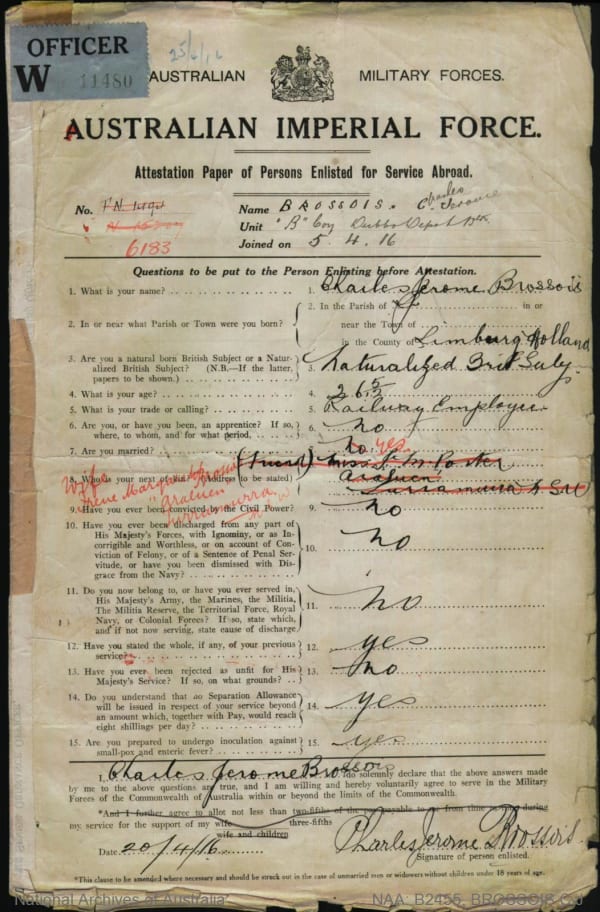 OFFICER
W 11480
25/6/16
AUSTRALIAN MILITARY FORCES.
AUSTRALIAN IMPERIAL FORCE.
Attestation Paper of Persons Enlisted for Service Abroad.
No. 6183
Name BROSSOIS. C. Charles Jerome
Unit "B" Coy Dubbo Depot Btn
Joined on 5.4.16
Questions to be put to the Person Enlisting before Attestation.
1. What is your name? 1. Charles Jerome Brossois
2. In or near what Parish or Town were you born? 2. In the Parish of in or
near the Town of
in the County of Limburg Holland
3. Are you a natural born British Subject or a Natu-
ralized British Subject? (N.B.—If the latter,
papers to be shown.) 3. Naturalized Brit Subj.
4. What is your age? 4. 26 5/12
5. What is your trade or calling? 5. Railway Employee
6. Are you, or have you been, an apprentice? If so,
where, to whom, and for what period. 6. No
7. Are you married? 7. No. yes
8. Who is your next of kin? (Address to be stated) 8. (friend) Miss I. M. Porter
Araluen
Murrumurra N.S.W
Wife
Irene Margaret
"Araluen"
9. Have you ever been convicted by the Civil Power? 9. No
10. Have you ever been discharged from any part of
His Majesty's Forces, with Ignominy, or as In-
corrigible and Worthless, or on account of Con-
viction of Felony, or of a Sentence of Penal Ser-
vitude, or have you been dismissed with Dis-
grace from the Navy? 10. No
11. Do you now belong to, or have you ever served in,
His Majesty's Army, the Marines, the Militia,
The Militia Reserve, the Territorial Force, Royal
Navy, or Colonial Forces? If so, state which,
and if not now serving, state cause of discharge 11. No
12. Have you stated the whole, if any, of your previous
service? 12. yes
13. Have you ever been rejected as unfit for His
Majesty's Service? If so, on what grounds? 13. No
14. Do you understand that no Separation Allowance
will be issued in respect of your service beyond
an amount which, together with Pay, would reach
eight shillings per day? 14. yes
15. Are you prepared to undergo inoculation against
small-pox and enteric fever? 15. yes
I, Charles Jerome Brossois do solemnly declare that the above answers made
by me to the above questions are true, and I am willing and hereby voluntarily agree to serve in the Military
Forces of the Commonwealth of Australia within or beyond the limits of the Commonwealth.
*And I further agree to allot not less than two-fifths of the pay payable to me from time to time during
three-fifths
my service for the support of my wife
wife and children
Date 20/4/16
Charles Jerome Brossois
Signature of person enlisted.
*This clause to be amended where necessary and should be struck out in the case of unmarried men or widowers without children under 18 years of age.
National Archives of Australia NAA: B2455, BROSSOIS C J